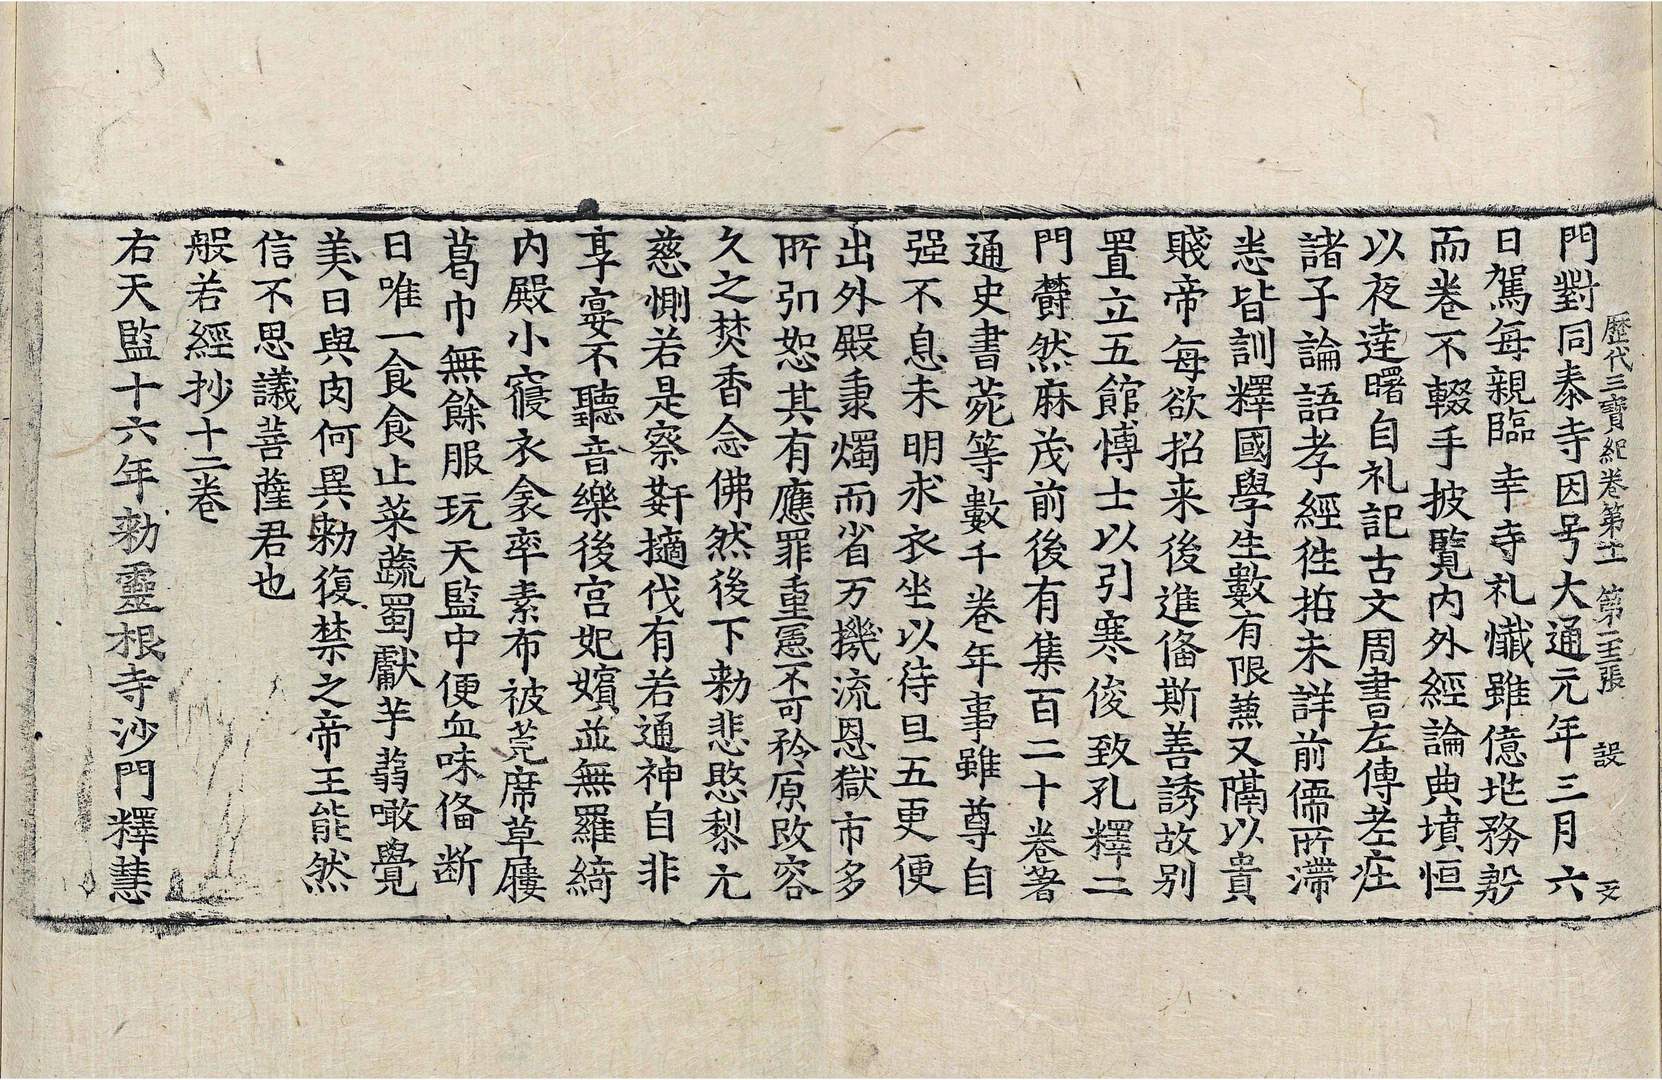 歷代三寶紀卷第十一 第二張 設 文
門對同泰寺因号大通元年三月六
日駕每親臨幸寺礼懺雖億兆務殷
而卷不輟手披覽内外經論典墳恒
以夜達曙自礼記古文周書左傳老莊
諸子論語孝經徃拍未詳前儒所滯
悉皆訓釋國學生數有限兼又隔以貴
賤帝每欲招来後進俻斯善誘故别
置立五館慱士以引寒俊致孔釋二
門欝然麻茂前後有集百二十卷著
通史書菀等數千卷年事雖尊自
强不息未明求衣坐以待旦五更便
出外殿秉燭而省万機流恩獄市多
所引恕其有應罪重憲不可矜原改容
久之焚香念佛然後下勑悲愍黎元
慈惻若是察姧擿伐有若通神自非
享宴不聽音樂後宫妃嬪並無羅綺
内殿小寢衣衾率素布被莞席草屨
葛巾無餘服玩天監中便血味俻断
日唯一食食止菜蔬蜀獻芋蒻噉覺
美曰與肉何異勑復禁之帝王能然
信不思議菩薩君也
般若經抄十二卷
右天監十六年勑靈根寺沙門釋慧